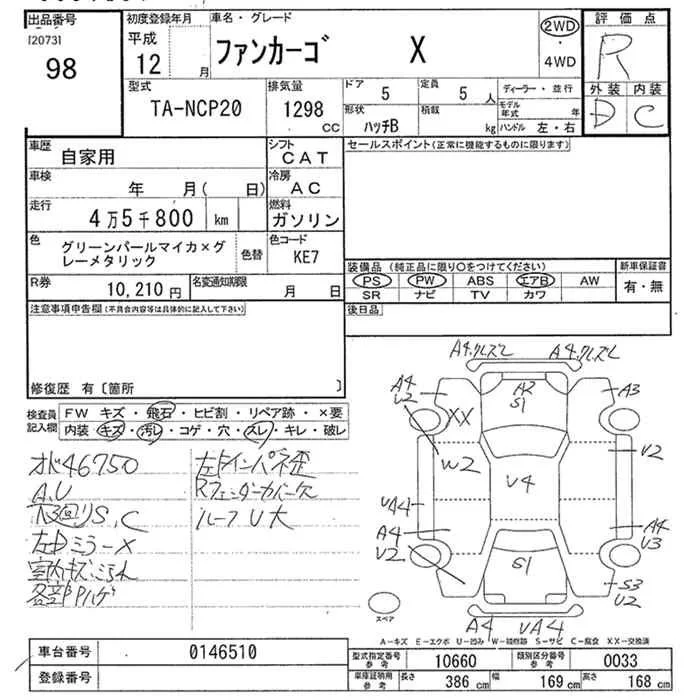 出品番号
[2073]
98
初度登録年月
平成
12 月
車名・グレード
ファンカーゴ X
2WD
・
4WD
評価点
R
外装 内装
D C
型式
TA-NCP20
排気量
1298
CC
ドア
5
定員
5 人
形状
ハッチB
積載
kg
ディーラー・並行
モデル年式 年
ハンドル 左・右
車歴
自家用
シフト
CAT
車検
年 月( 日)
冷房
AC
走行
4万5千800 km
燃料
ガソリン
色
グリーンパールマイカ×グ
レーメタリック
色替
色コード
KE7
R券
10,210 円
名変通知期限
月 日
セールスポイント(正常に機能するものに限ります)
装備品(純正品に限り○をつけてください)
新車保証書
PS PW ABS エアB AW
SR ナビ TV カワ
有・無
後日品
注意事項申告欄(不具合内容等は具体的に記入して下さい)
修復歴 有〔箇所 〕
検査員
記入欄
FW キズ・飛石・ヒビ割・リペア跡・×要
内装 キズ・汚レ・コゲ・穴・スレ・キレ・破レ
オド46750
A,U
下回りS,C
左ドミラーX
室内キズ,ヨゴレ
各部Pハゲ
左インパネ歪
Rフェンダーカバー欠
ルーフU大
A4 クレズレ
A4 クレズレ
A4
U2
XX
A2
S1
A3
W2
V4
U2
UA4
A4
U2
S1
A4
U3
S3
U2
A4
UA4
スペア
A-キズ E-エクボ U-凹み W-補修跡 S-サビ C-腐食 XX-交換済
車台番号
0146510
登録番号
型式指定番号
参考
10660
類別区分番号
参考
0033
車庫証明用
参考
長さ 386 cm
幅 169 cm
高さ 168 cm